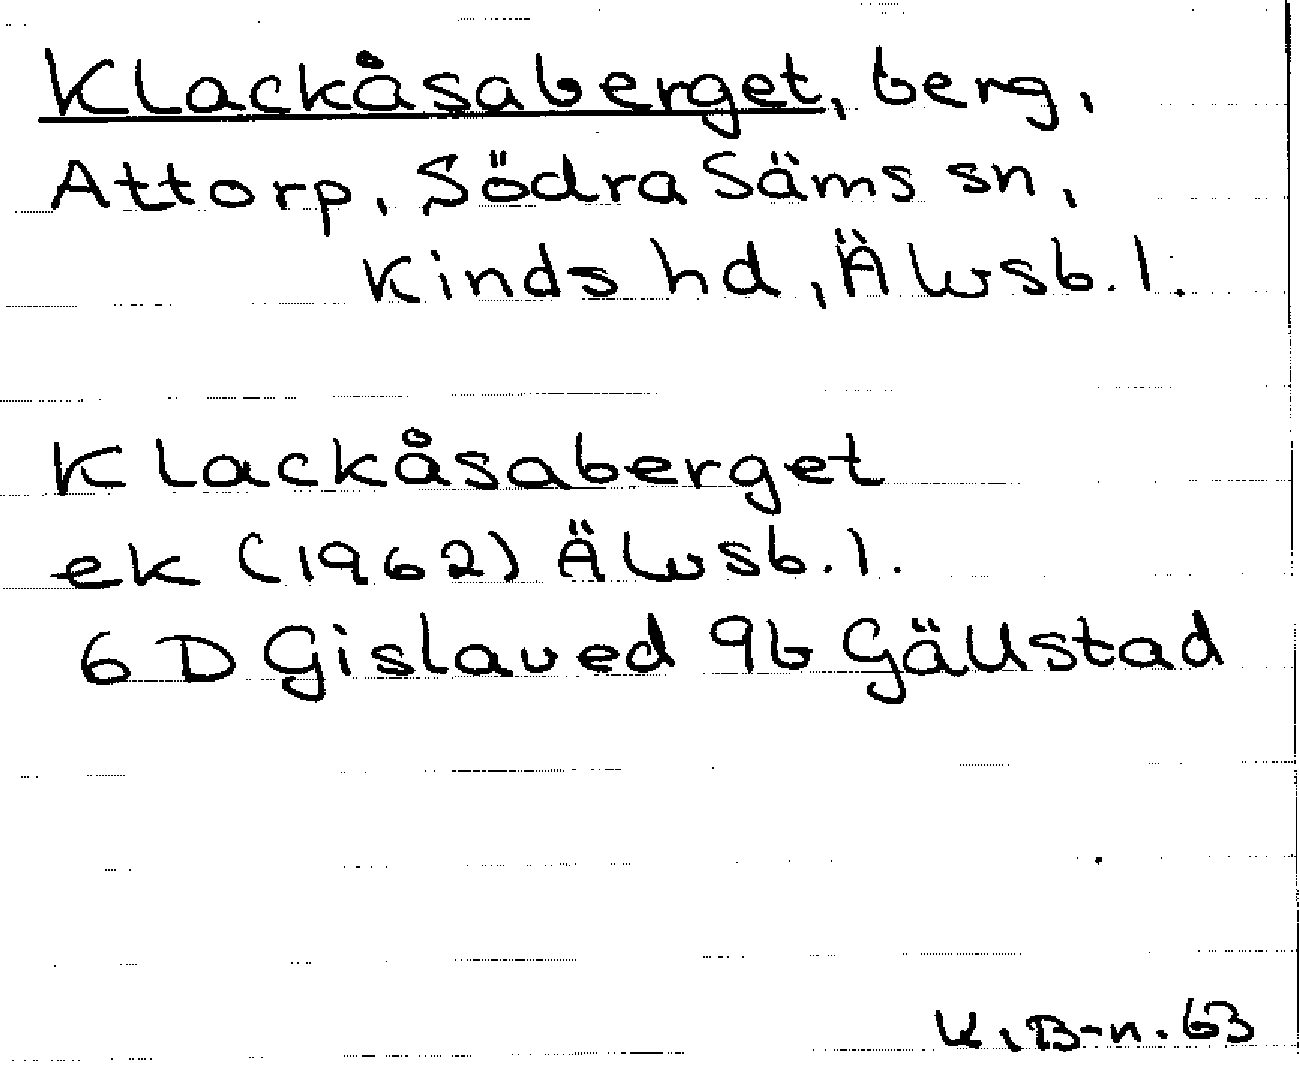 Klackåsaberget, berg,
Attorp, Södra Säms sn,
Kinds hd, Älvsb. l.
Klackåsaberget
ek (1962) Älvsb. l.
6 D Gislaved 9b Gällstad
K. B-n. 63